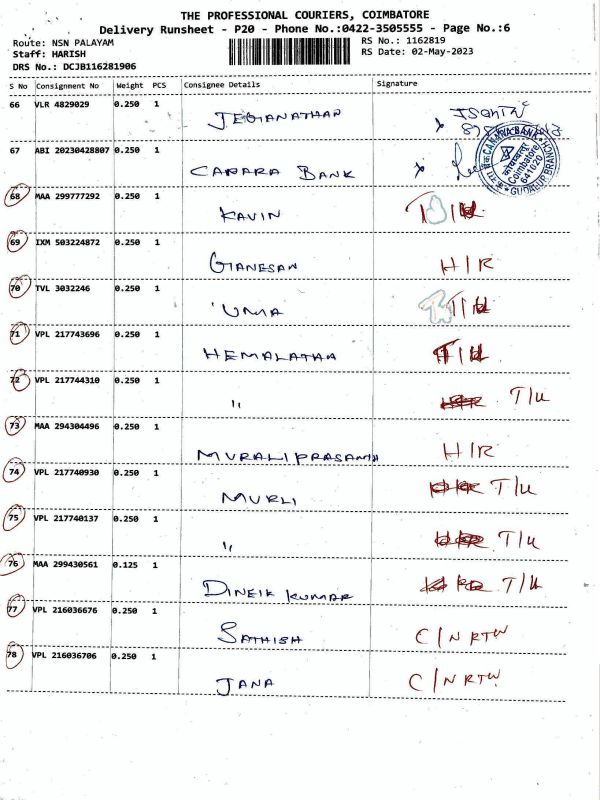 THE PROFESSIONAL COURIERS, COIMBATORE
Delivery Runsheet - P20 - Phone No.:0422-3505555 - Page No.:6
Route: NSN PALAYAM RS No.: 1162819
Staff: HARISH RS Date: 02-May-2023
DRS No.: DCJB116281906
S No Consignment No Weight PCS Consignee Details Signature
66 VLR 4829029 0.250 1 JEGANATHAN
67 ABI 20230428807 0.250 1 CANARA BANK
CANARA BANK
कोयम्बत्तूर
Coimbatore
641020
GUDALUR BRANCH
68 MAA 299777292 0.250 1 KAVIN
69 IXM 503224872 0.250 1 GANESAN H/R
70 TVL 3032246 0.250 1 UMA
71 VPL 217743696 0.250 1 HEMALATHA
72 VPL 217744310 0.250 1 " T/U
73 MAA 294304496 0.250 1 MURALIPRASANTH H/R
74 VPL 217740930 0.250 1 MURLI T/U
75 VPL 217740137 0.250 1 " T/U
76 MAA 299430561 0.125 1 DINEIK KUMAR T/U
77 VPL 216036676 0.250 1 SATHISH C/N RTN
78 VPL 216036706 0.250 1 JANA C/N RTN